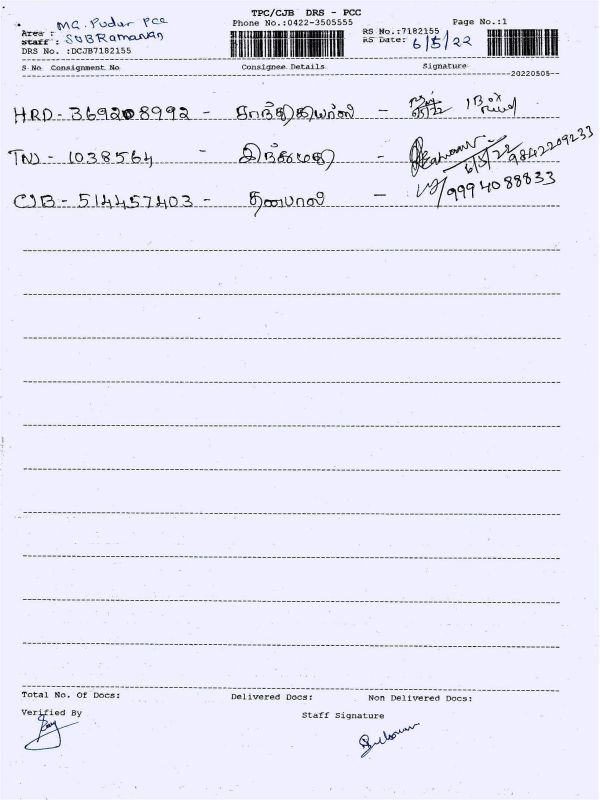 TPC/CJB DRS - PCC
Phone No.:0422-3505555 Page No.:1
Area : MG. Pudur PCC
RS No.:7182155
Staff : SUBRamanan
RS Date: 6/5/22
DRS No. :DCJB7182155
S No Consignment No Consignee Details Signature
20220505
HRD - 369208992 - 1 Box
TN - 1038564 - 6/5/22 9842209233
CJB - 514457403 - தனபால் - 9994088833
Total No. Of Docs: Delivered Docs: Non Delivered Docs:
Verified By Staff Signature